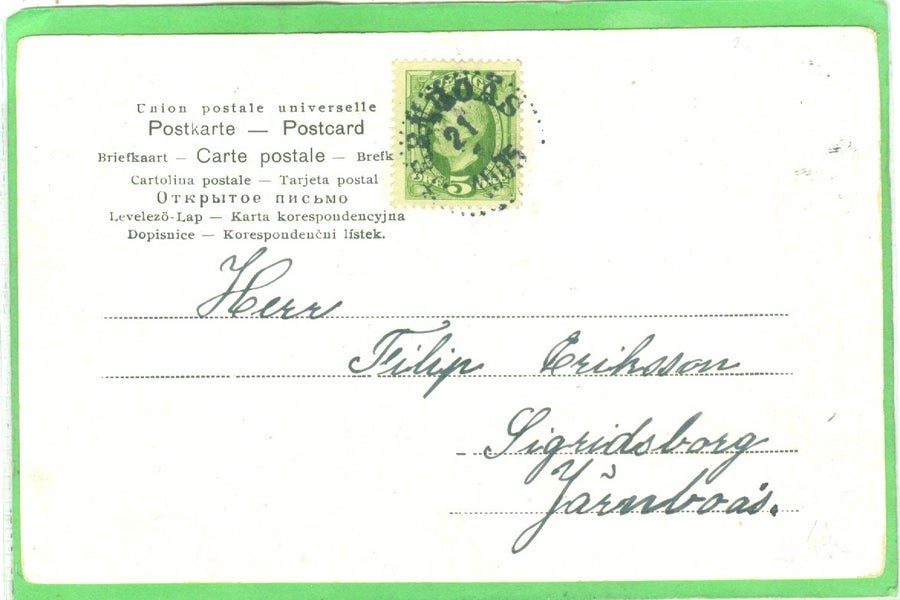 Union postale universelle
Postkarte — Postcard
Briefkaart — Carte postale — Brefk
Cartolina postale — Tarjeta postal
Открытое письмо
Levelező-Lap — Karta korespondencyjna
Dopisnice — Korespondenční lístek.
5
21
1905
Herr
Filip Eriksson
Sigridsborg
Järnboås.